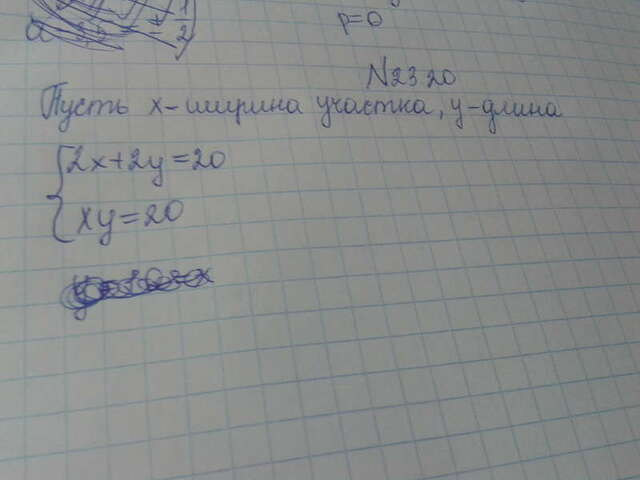 p=0
N2320
Пусть x-ширина участка, y-длина
2x+2y=20
xy=20